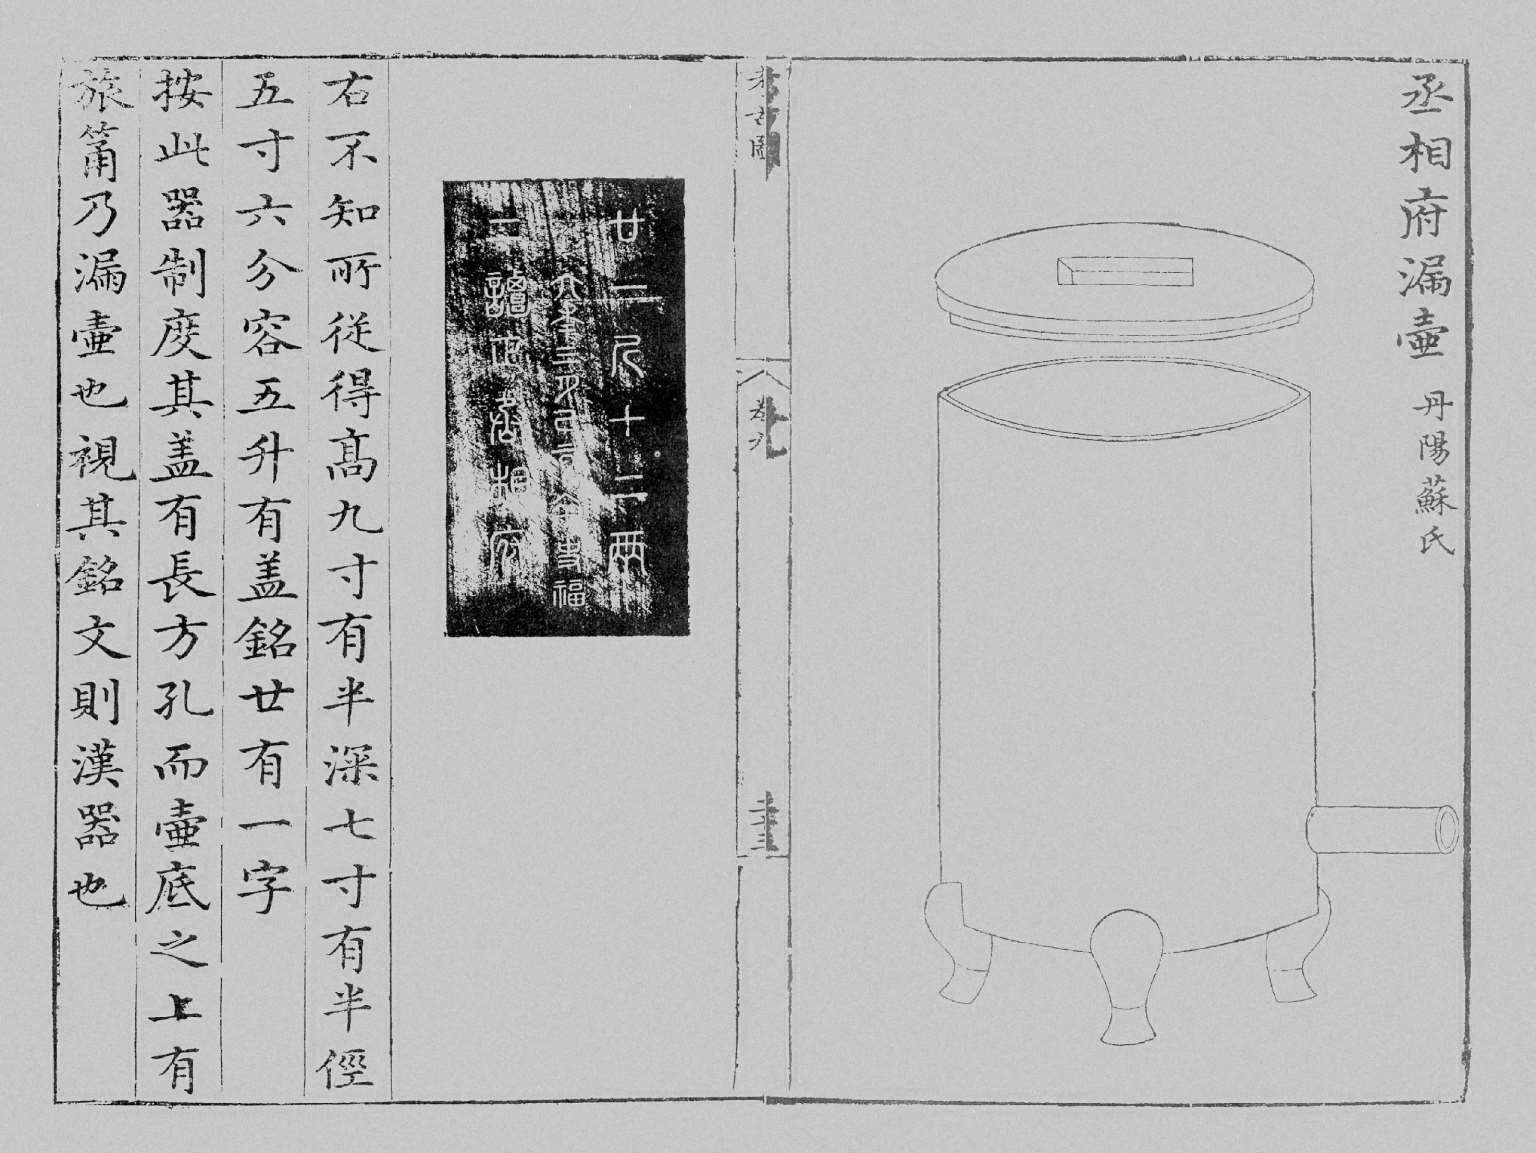 丞相府漏壷 丹陽蘇氏
考古圖
卷九
廿一斤十二兩
六年三月己亥年史福
相府
右不知所從得髙九寸有半深七寸有半徑
五寸六分容五升有盖銘廿有一字
按此器制度其盖有長方孔而壷底之上有
旅筩乃漏壷也視其銘文則漢器也